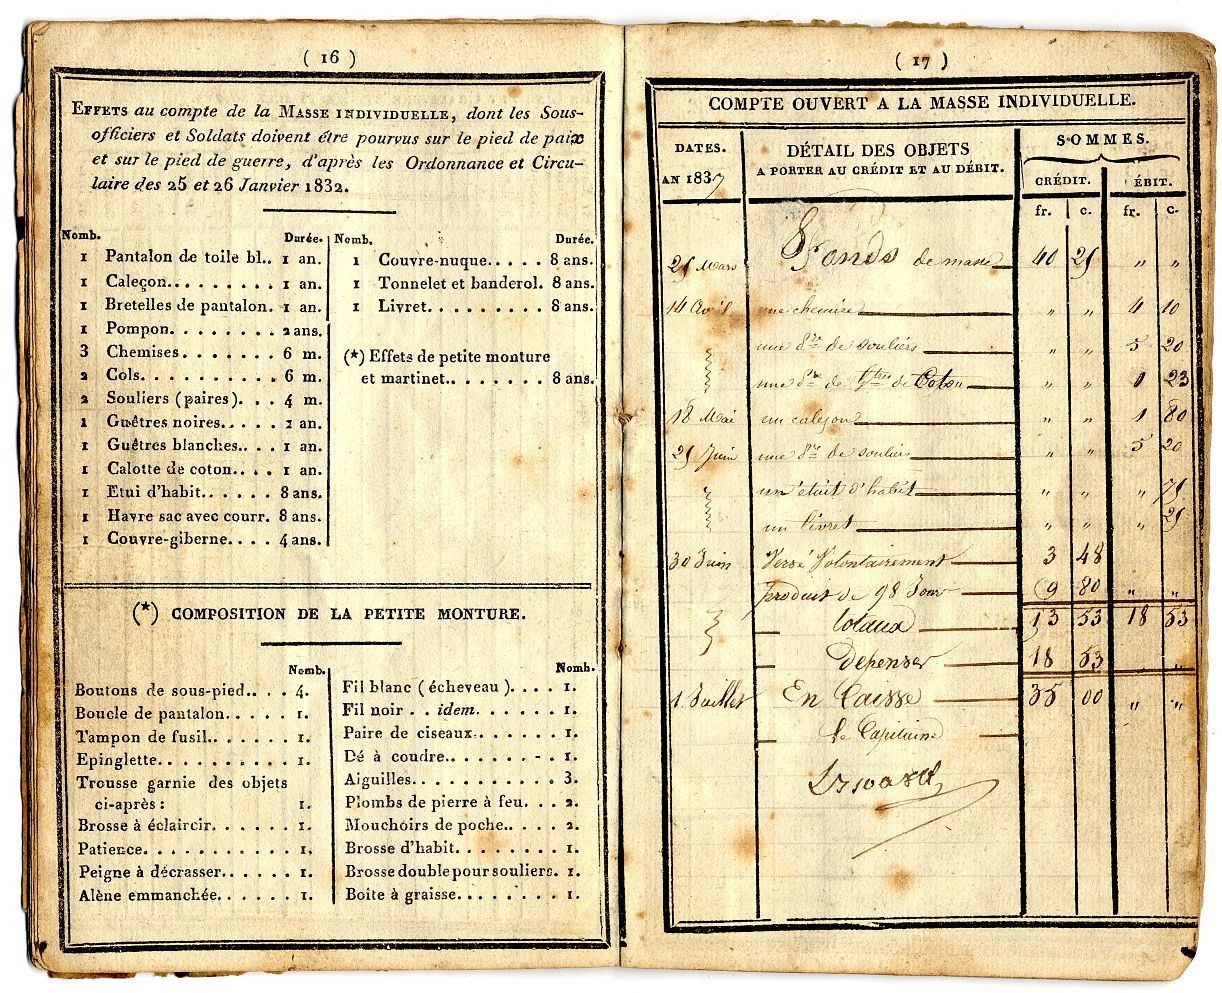 ( 16 )
EFFETS au compte de la MASSE INDIVIDUELLE, dont les Sous-
officiers et Soldats doivent être pourvus sur le pied de paix
et sur le pied de guerre, d'après les Ordonnance et Circu-
laire des 25 et 26 Janvier 1832.
Nomb. Durée.
1 Pantalon de toile bl.. 1 an.
1 Caleçon......... 1 an.
1 Bretelles de pantalon. 1 an.
1 Pompon........ 2 ans.
3 Chemises....... 6 m.
2 Cols.......... 6 m.
2 Souliers (paires)... 4 m.
1 Guêtres noires..... 1 an.
1 Guêtres blanches... 1 an.
1 Calotte de coton.... 1 an.
1 Etui d'habit...... 8 ans.
1 Havre sac avec courr. 8 ans.
1 Couvre-giberne.... 4 ans.
Nomb. Durée.
1 Couvre-nuque..... 8 ans.
1 Tonnelet et banderol. 8 ans.
1 Livret......... 8 ans.
(*) Effets de petite monture
et martinet........ 8 ans.
(*) COMPOSITION DE LA PETITE MONTURE.
Nomb.
Boutons de sous-pied... 4.
Boucle de pantalon..... 1.
Tampon de fusil...... 1.
Epinglette......... 1.
Trousse garnie des objets
ci-après : 1.
Brosse à éclaircir...... 1.
Patience........... 1.
Peigne à décrasser..... 1.
Alène emmanchée..... 1.
Nomb.
Fil blanc (écheveau).... 1.
Fil noir . . idem....... 1.
Paire de ciseaux...... 1.
Dé à coudre........ 1.
Aiguilles.......... 3.
Plombs de pierre à feu... 2.
Mouchoirs de poche.... 2.
Brosse d'habit....... 1.
Brosse double pour souliers. 1.
Boîte à graisse....... 1.
( 17 )
COMPTE OUVERT A LA MASSE INDIVIDUELLE.
DATES. DÉTAIL DES OBJETS SOMMES.
AN 1837 A PORTER AU CRÉDIT ET AU DÉBIT. CRÉDIT. ÉBIT.
fr. c. fr. c.
25 Mars Fonds de masse 40 25 " "
14 Avril une chemise " " 4 10
une pre de souliers " " 5 20
une pre de gtres de Coton " " 1 23
18 Mai un caleçon " " 1 80
25 Juin une pre de souliers " " 5 20
un étuit d'habit " " " 75
un livret " " " 25
30 Juin Versé Volontairement 3 48
produit de 98 Jour 9 80 " "
totaux 13 53 18 53
depenser 18 53 "
1 Juillet En Caisse 35 00 " "
Le Capitaine